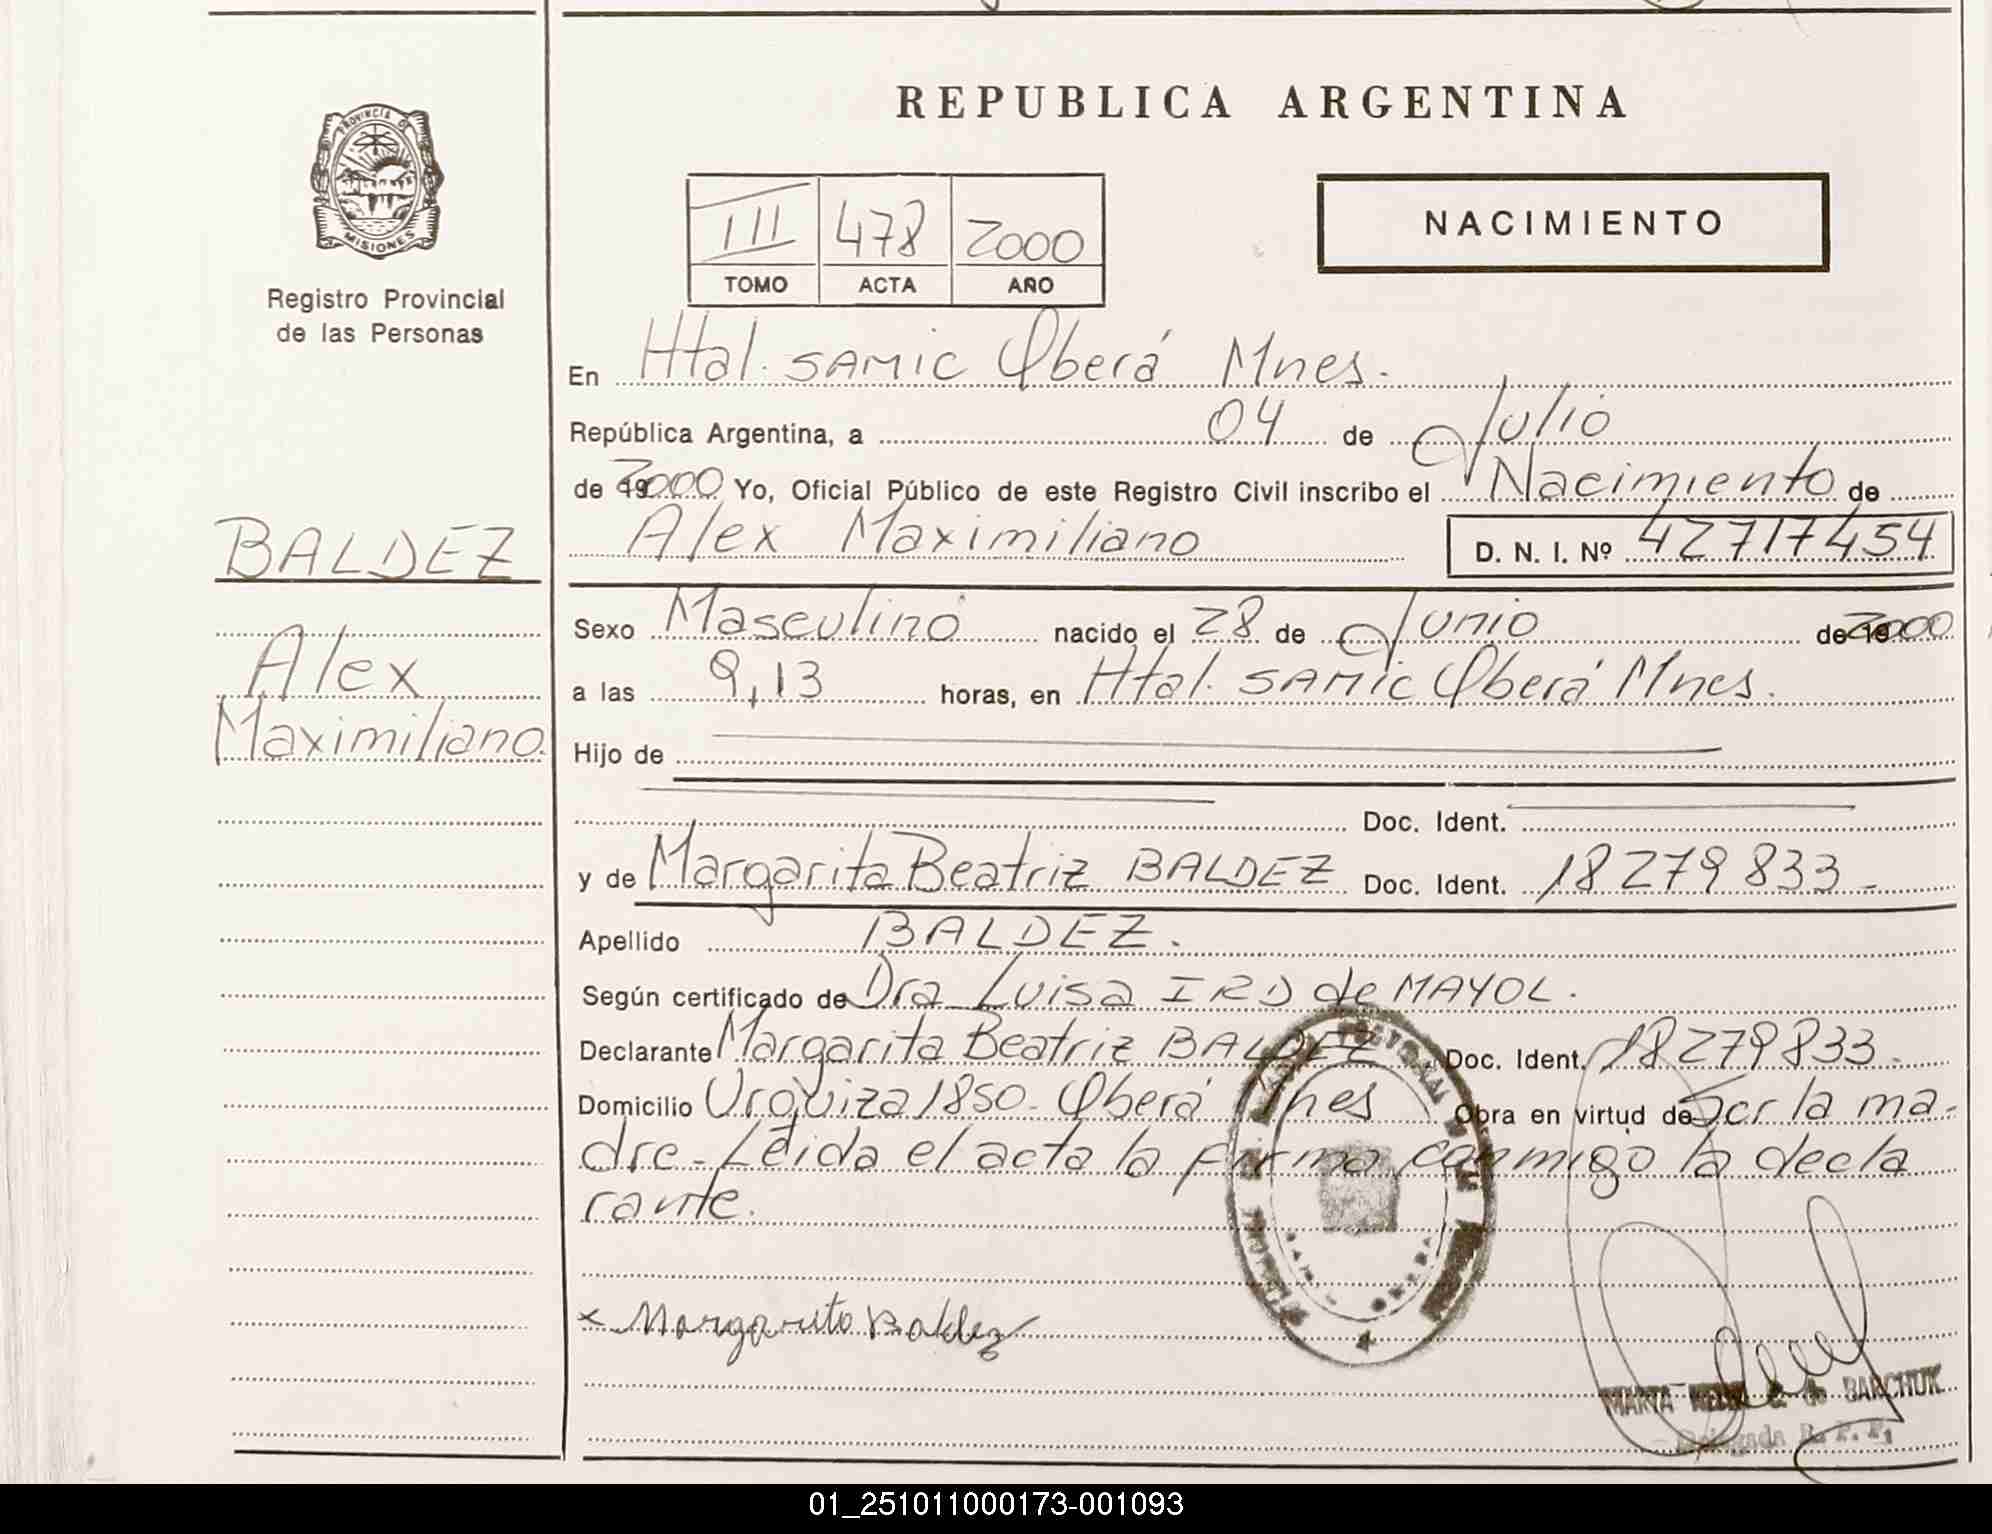 REPUBLICA ARGENTINA
PROVINCIA DE
MISIONES
Registro Provincial
de las Personas
III 478 2000
TOMO ACTA AÑO
NACIMIENTO
En Htal. SAMIC Oberá Mnes.
República Argentina, a 04 de Julio
de 2000 Yo, Oficial Público de este Registro Civil inscribo el Nacimiento de
Alex Maximiliano D. N. I. Nº 42717454
BALDEZ
Alex
Maximiliano.
Sexo Masculino nacido el 28 de Junio de 2000
a las 9,13 horas, en Htal. SAMIC Oberá Mnes.
Hijo de
Doc. Ident.
y de Margarita Beatriz BALDEZ Doc. Ident. 18279833-
Apellido BALDEZ.
Según certificado de Dra Luisa IRD de MAYOL.
Declarante Margarita Beatriz BALDEZ Doc. Ident. 18279833-
Domicilio Urquiza 1850- Oberá Mnes Obra en virtud de Ser la ma-
dre- Leida el acta la firma conmigo la decla
rante.
x Margarita Baldez
MARTA de BARCHUK
Delegada R. P. P.
01_251011000173-001093